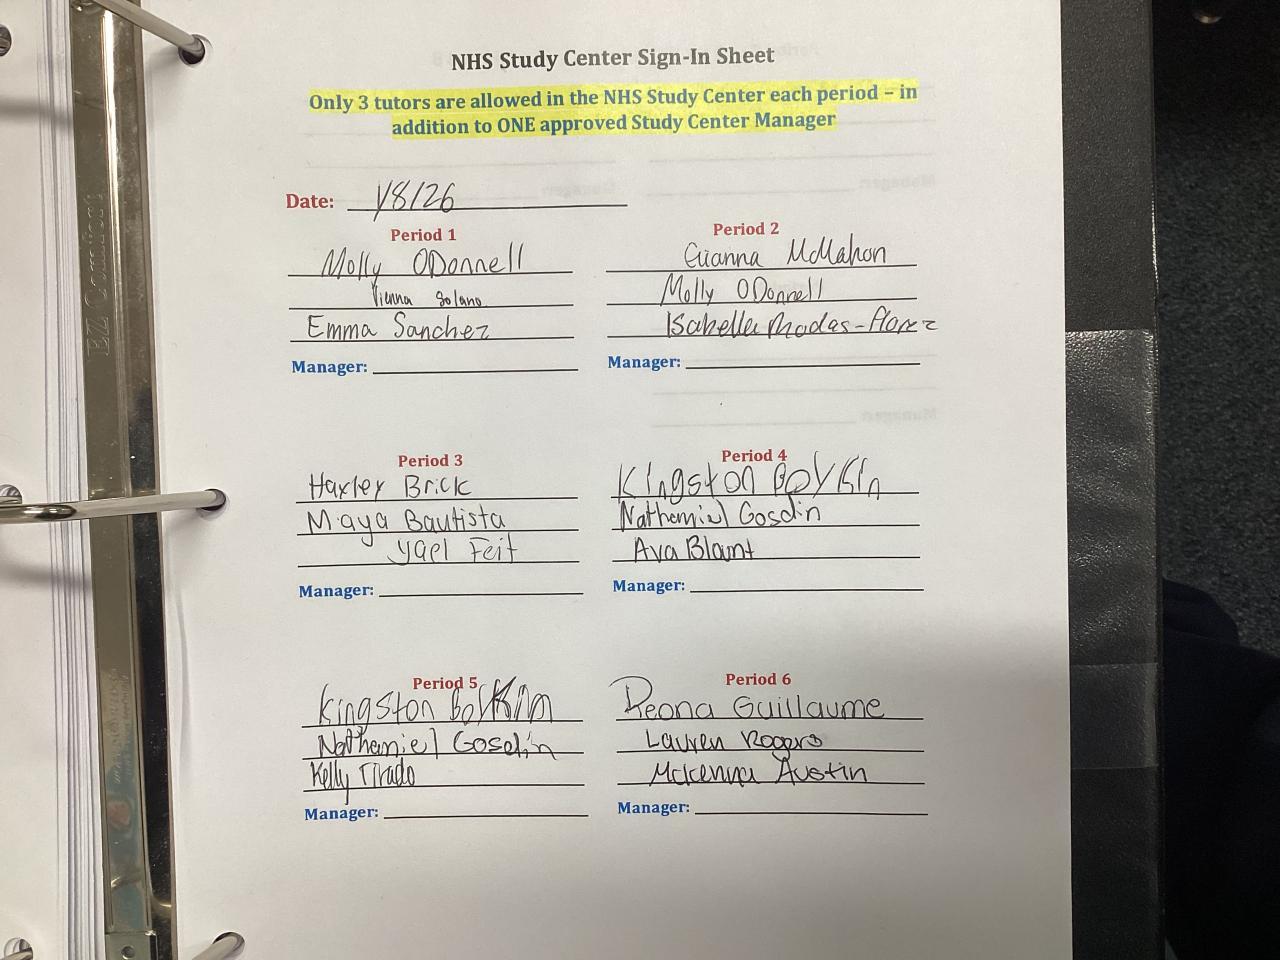 NHS Study Center Sign-In Sheet
Only 3 tutors are allowed in the NHS Study Center each period – in
addition to ONE approved Study Center Manager
Date: 1/8/26
Period 1
Molly ODonnell
Vienna Solano
Emma Sanchez
Manager:
Period 2
Gianna McMahon
Molly ODonnell
Isabella Rhodas-Florez
Manager:
Period 3
Haxley Brick
Maya Bautista
Yael Feit
Manager:
Period 4
Kingston Boykin
Nathaniel Gosdin
Ava Blamt
Manager:
Period 5
Kingston Boykin
Nathaniel Gosdin
Kelly Tirado
Manager:
Period 6
Reona Guillaume
Lauren Rogers
Mckenna Austin
Manager: